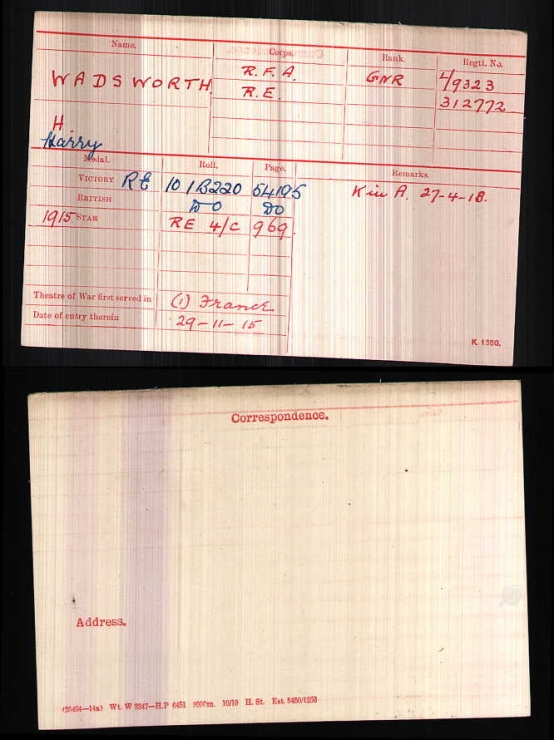 Name. Corps. Rank. Regtl. No.
WADSWORTH R.F.A. GNR L/9323
R.E. 312772
H.
Harry
Medal. Roll. Page. Remarks.
VICTORY RE 101B220 54195 Kin A. 27-4-18.
BRITISH DO DO
1915 STAR RE 4/C 969.
Theatre of War first served in (1) France
Date of entry therein 29-11-15
K. 1380.
Correspondence.
Address.
(25454—14a) Wt. W 5347—H.P 6451 10/19 H. St. Est.